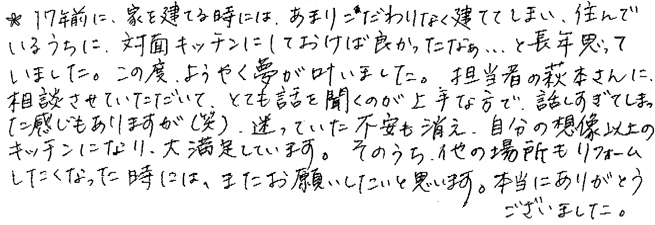 * 17年前に、家を建てる時には、あまりこだわりなく建ててしまい、住んで
いるうちに、対面キッチンにしておけば良かったなぁ…と長年思って
いました。この度、ようやく夢が叶いました。担当者の萩本さんに、
相談させていただいて、とても話を聞くのが上手な方で、話しすぎてしまっ
た感じもありますが(笑)、迷っていた不安も消え、自分の想像以上の
キッチンになり、大満足しています。そのうち、他の場所もリフォーム
したくなった時には、またお願いしたいと思います。本当にありがとう
ございました。